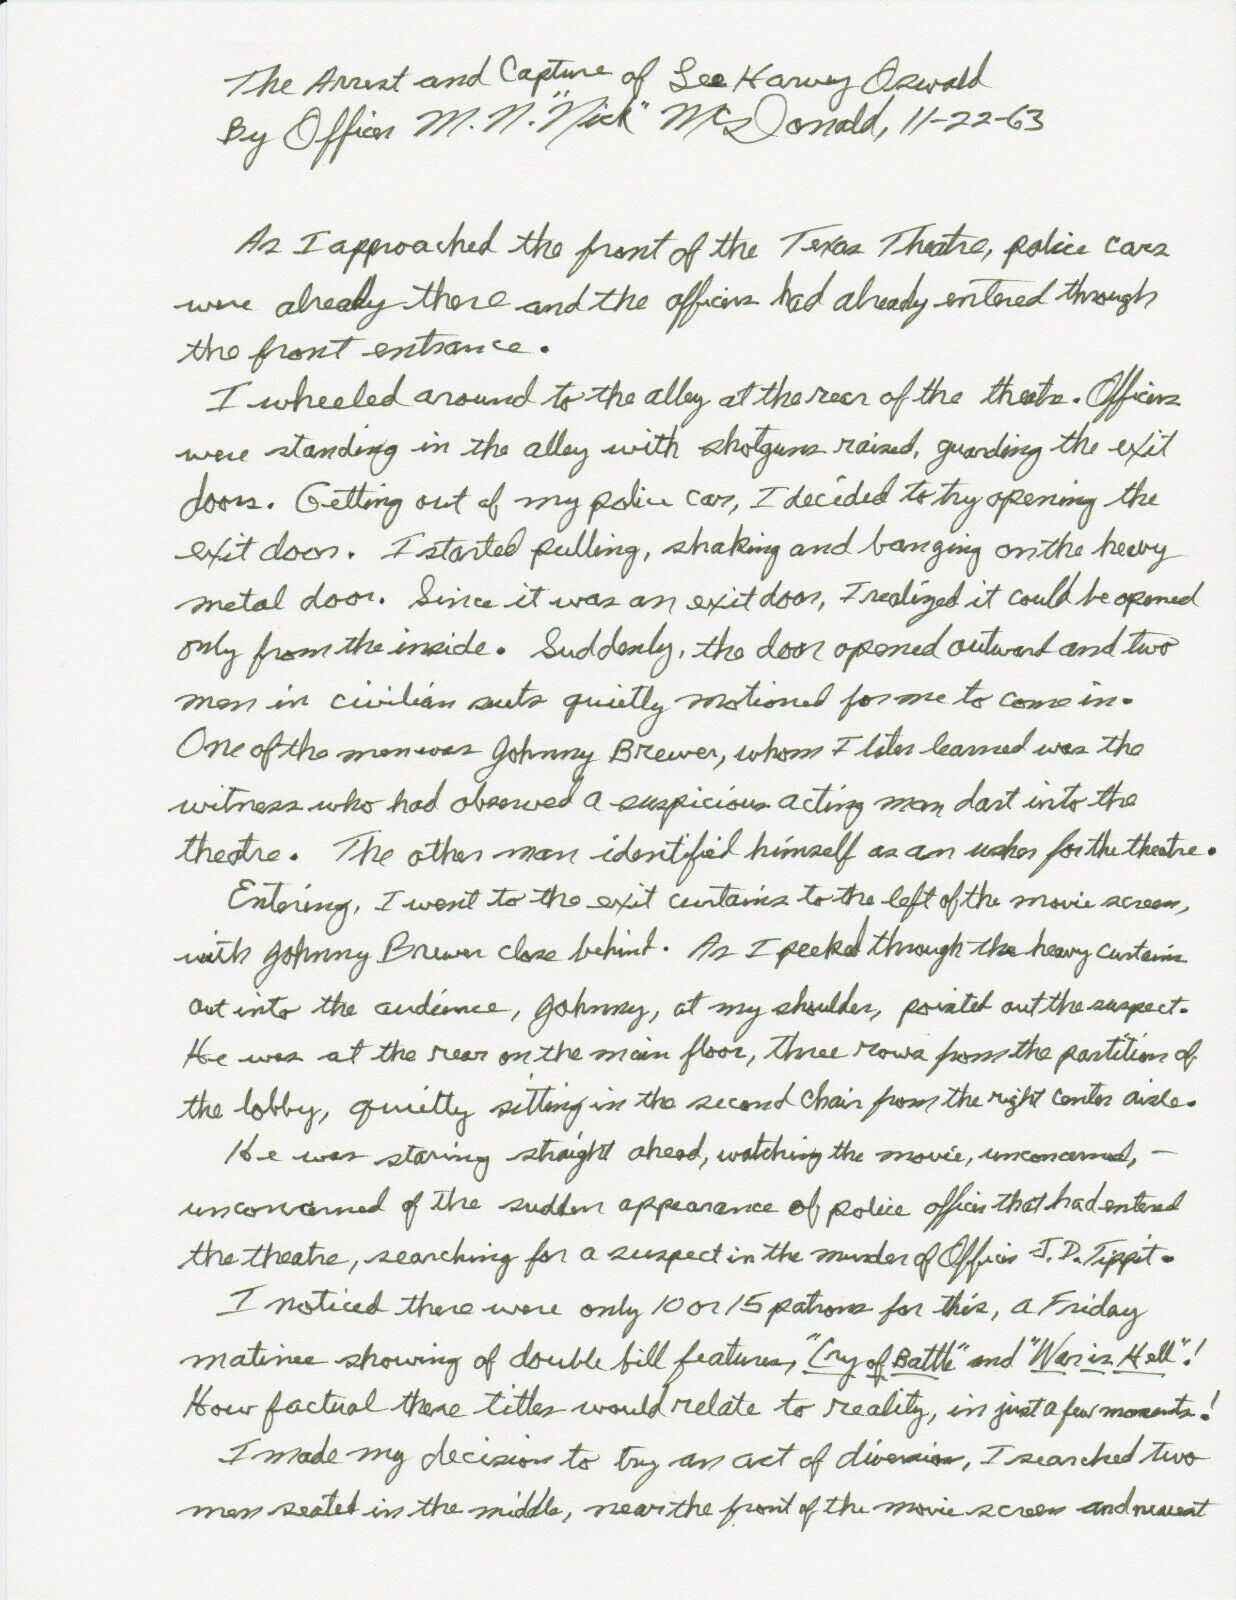 The Arrest and Capture of Lee Harvey Oswald
By Officer M. N. "Nick" McDonald, 11-22-63
As I approached the front of the Texas Theatre, police cars
were already there and the officers had already entered through
the front entrance.
I wheeled around to the alley at the rear of the theatre. Officers
were standing in the alley with shotguns raised, guarding the exit
doors. Getting out of my police car, I decided to try opening the
exit door. I started pulling, shaking and banging on the heavy
metal door. Since it was an exit door, I realized it could be opened
only from the inside. Suddenly, the door opened outward and two
men in civilian suits quietly motioned for me to come in.
One of the men was Johnny Brewer, whom I later learned was the
witness who had observed a suspicious acting man dart into the
theatre. The other man identified himself as an usher for the theatre.
Entering, I went to the exit curtains to the left of the movie screen,
with Johnny Brewer close behind. As I peeked through the heavy curtains
out into the audience, Johnny, at my shoulder, pointed out the suspect.
He was at the rear on the main floor, three rows from the partition of
the lobby, quietly sitting in the second chair from the right center aisle.
He was staring straight ahead, watching the movie, unconcerned, —
unconcerned of the sudden appearance of police officers that had entered
the theatre, searching for a suspect in the murder of Officer J. D. Tippit.
I noticed there were only 10 or 15 patrons for this, a Friday
matinee showing of double bill features, "Cry of Battle" and "War is Hell"!
How factual these titles would relate to reality, in just a few moments!
I made my decision to try an act of diversion, I searched two
men seated in the middle, near the front of the movie screen and nearest